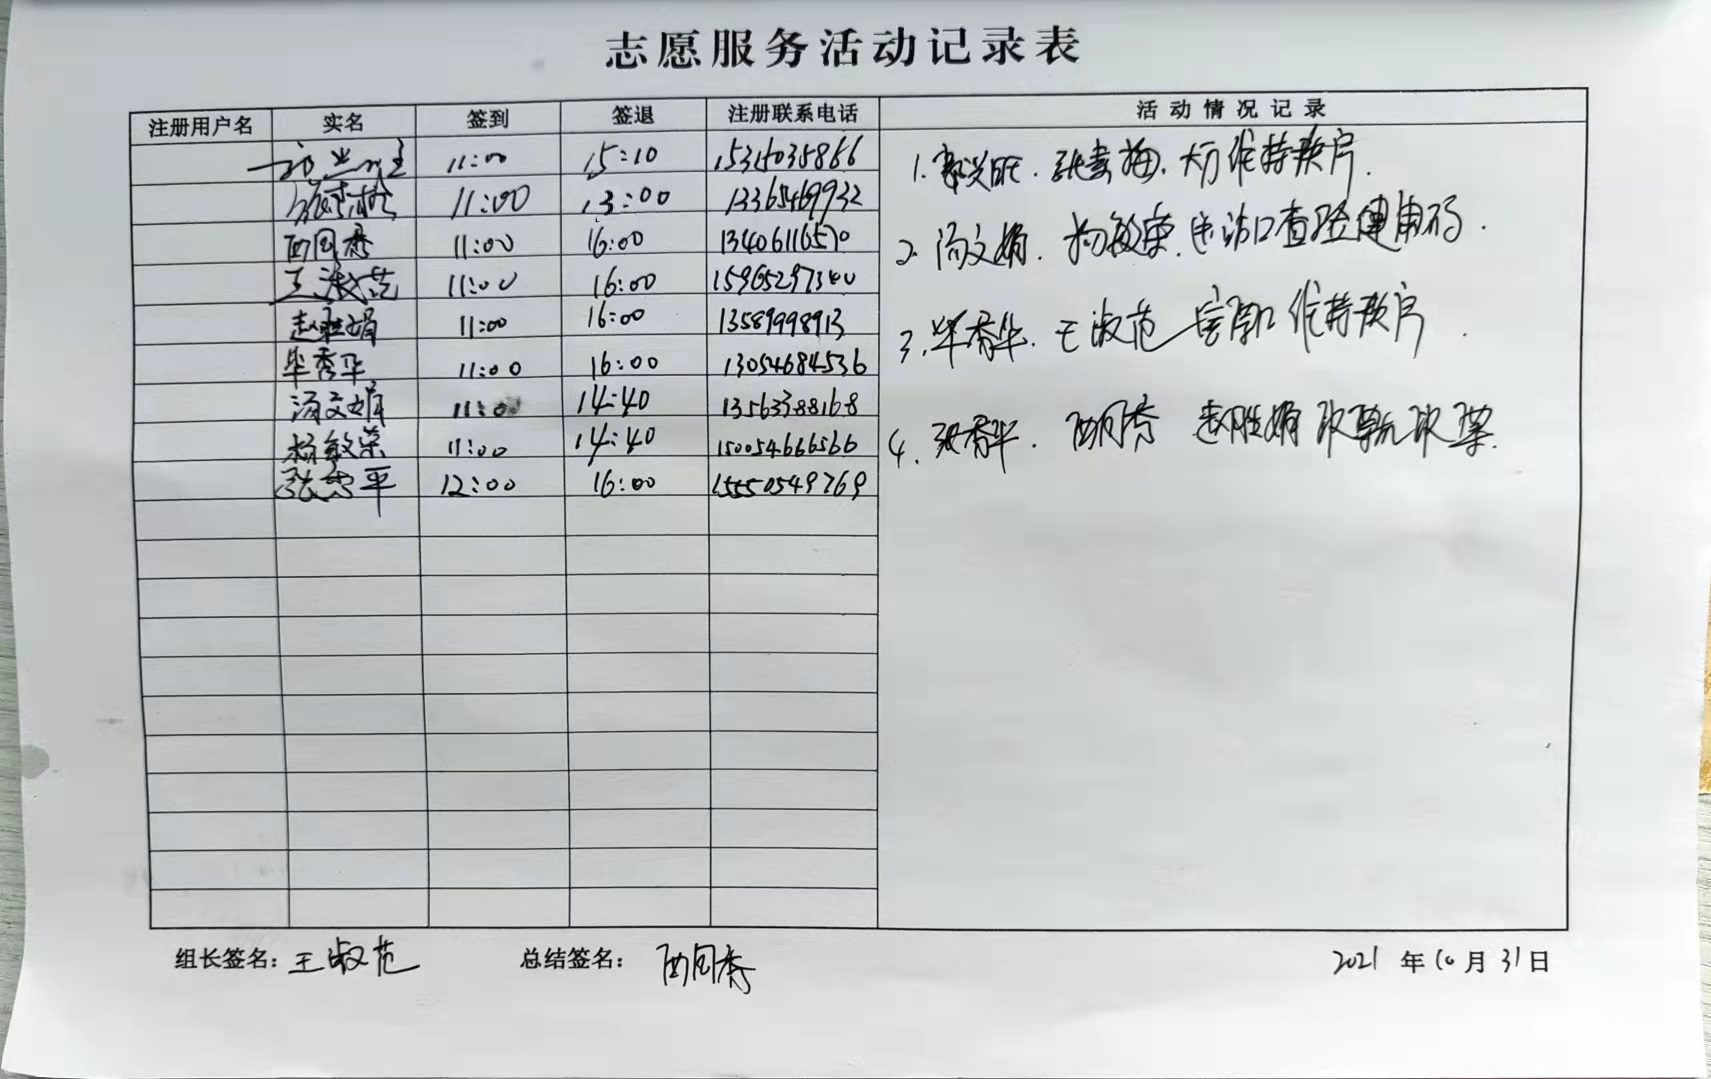 志愿服务活动记录表
注册用户名 实名 签到 签退 注册联系电话 活动情况记录
11:00 15:10 15315035866
11:00 13:00 13365469932
西同秀 11:00 16:00 13406116570
王淑范 11:00 16:00 15965297340
赵胜娟 11:00 16:00 13589998913
毕秀华 11:00 16:00 13054684536
汤文娟 11:00 14:40 13563388168
杨敏荣 11:00 14:40 15005466656
12:00 16:00 15550549769
1. 维持秩序.
2. 汤文娟. 杨敏荣. 口查验健康码.
3. 毕秀华. 王淑范 维持秩序.
4. 张秀华. 西同秀 赵胜娟
组长签名: 王淑范 总结签名: 西同秀 2021 年 10 月 31 日